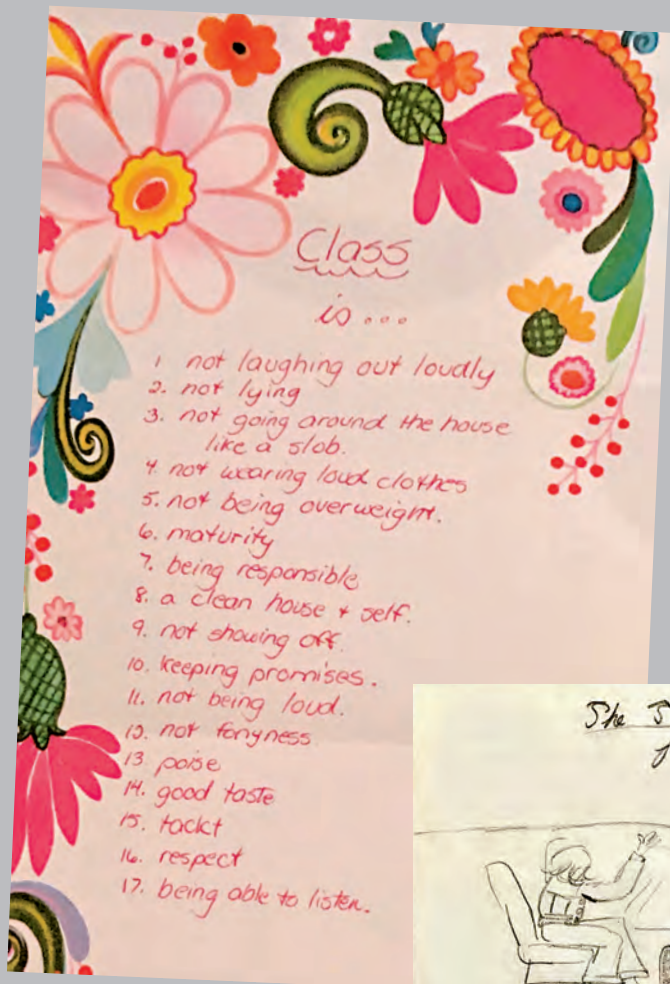 Class
is...
1 not laughing out loudly
2. not lying
3. not going around the house
like a slob.
4. not wearing loud clothes
5. not being overweight.
6. maturity
7. being responsible
8. a clean house + self.
9. not showing off.
10. keeping promises.
11. not being loud.
12. not fonyness
13 poise
14. good taste
15. tackt
16. respect
17. being able to listen.
She